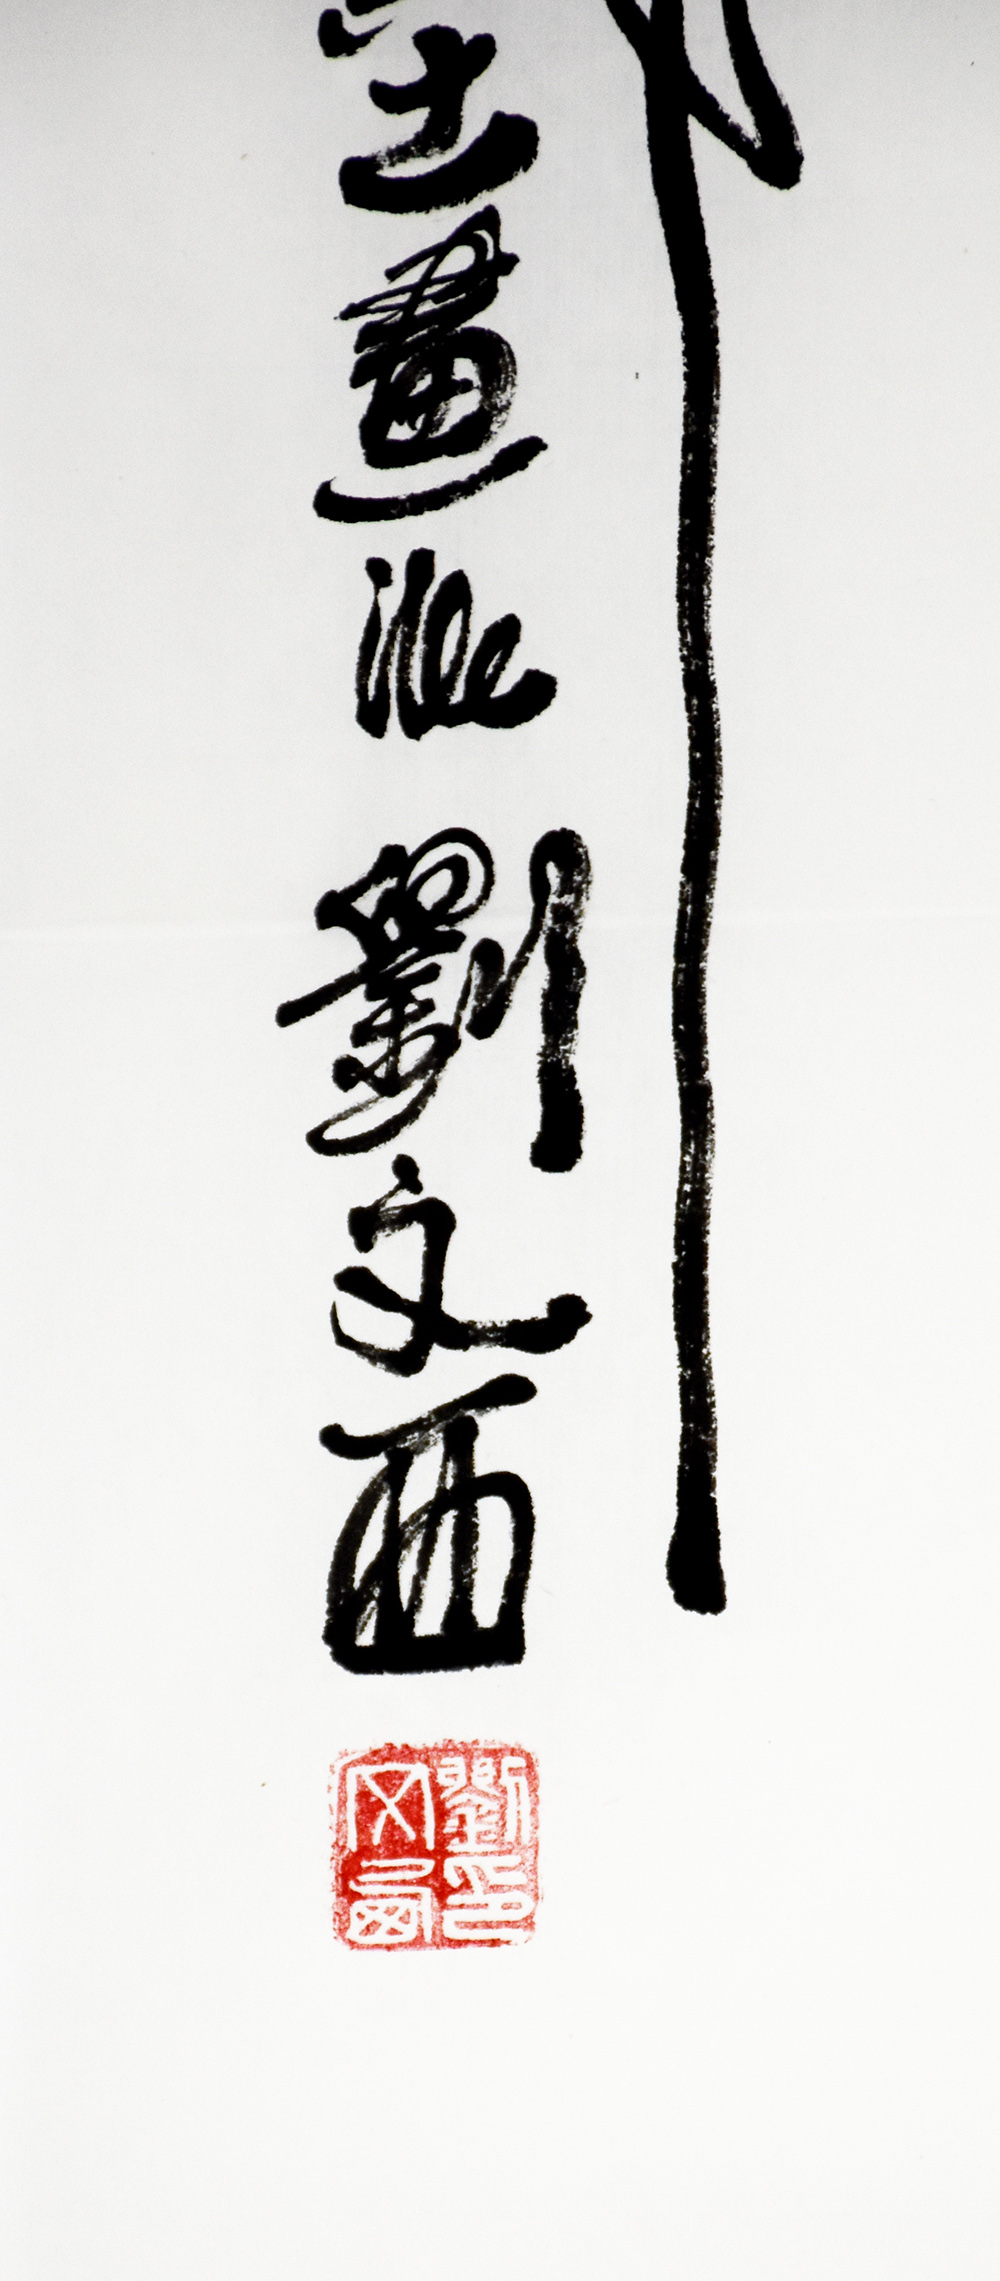 土畫派 劉文西
劉印
文西